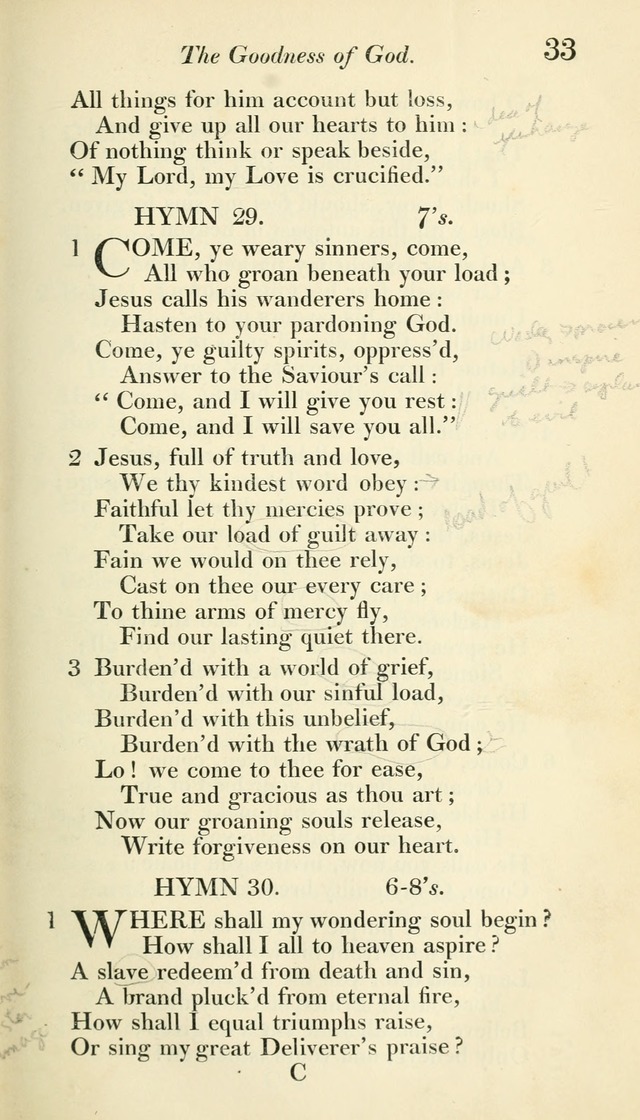 The Goodness of God. 33
All things for him account but loss,
And give up all our hearts to him :
Of nothing think or speak beside,
“ My Lord, my Love is crucified.”
HYMN 29. 7’s.
1 COME, ye weary sinners, come,
All who groan beneath your load ;
Jesus calls his wanderers home :
Hasten to your pardoning God.
Come, ye guilty spirits, oppress’d,
Answer to the Saviour’s call :
“ Come, and I will give you rest :
Come, and I will save you all.”
2 Jesus, full of truth and love,
We thy kindest word obey :
Faithful let thy mercies prove ;
Take our load of guilt away :
Fain we would on thee rely,
Cast on thee our every care ;
To thine arms of mercy fly,
Find our lasting quiet there.
3 Burden’d with a world of grief,
Burden’d with our sinful load,
Burden’d with this unbelief,
Burden’d with the wrath of God ;
Lo ! we come to thee for ease,
True and gracious as thou art ;
Now our groaning souls release,
Write forgiveness on our heart.
HYMN 30. 6-8’s.
1 WHERE shall my wondering soul begin ?
How shall I all to heaven aspire ?
A slave redeem’d from death and sin,
A brand pluck’d from eternal fire,
How shall I equal triumphs raise,
Or sing my great Deliverer’s praise ?
C
of
inspire
of evil
load of guilt